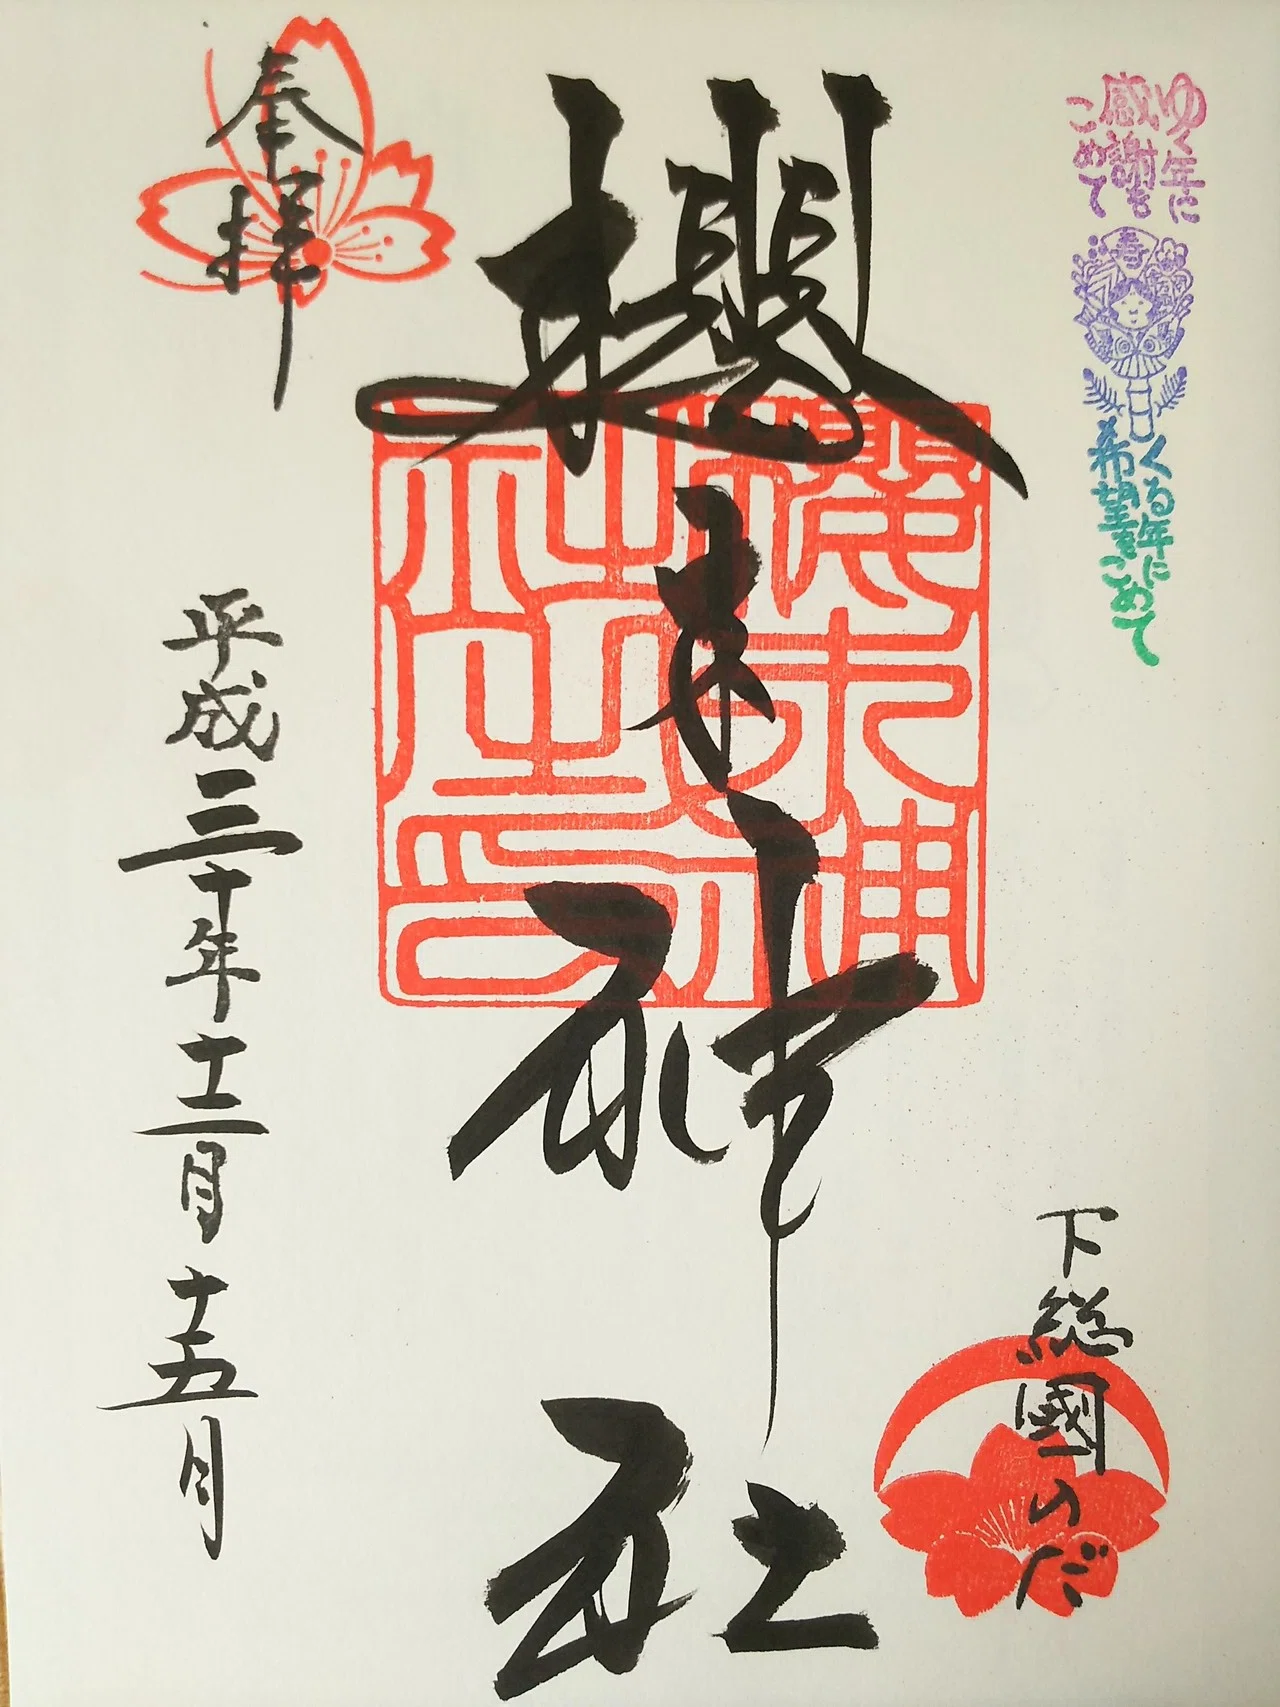 ゆく年に
感謝を
こめて
寿
くる年に
希望をこめて
下総國のだ
櫻木神社
櫻木神
社之印
奉拝
平成三十年十二月十五日